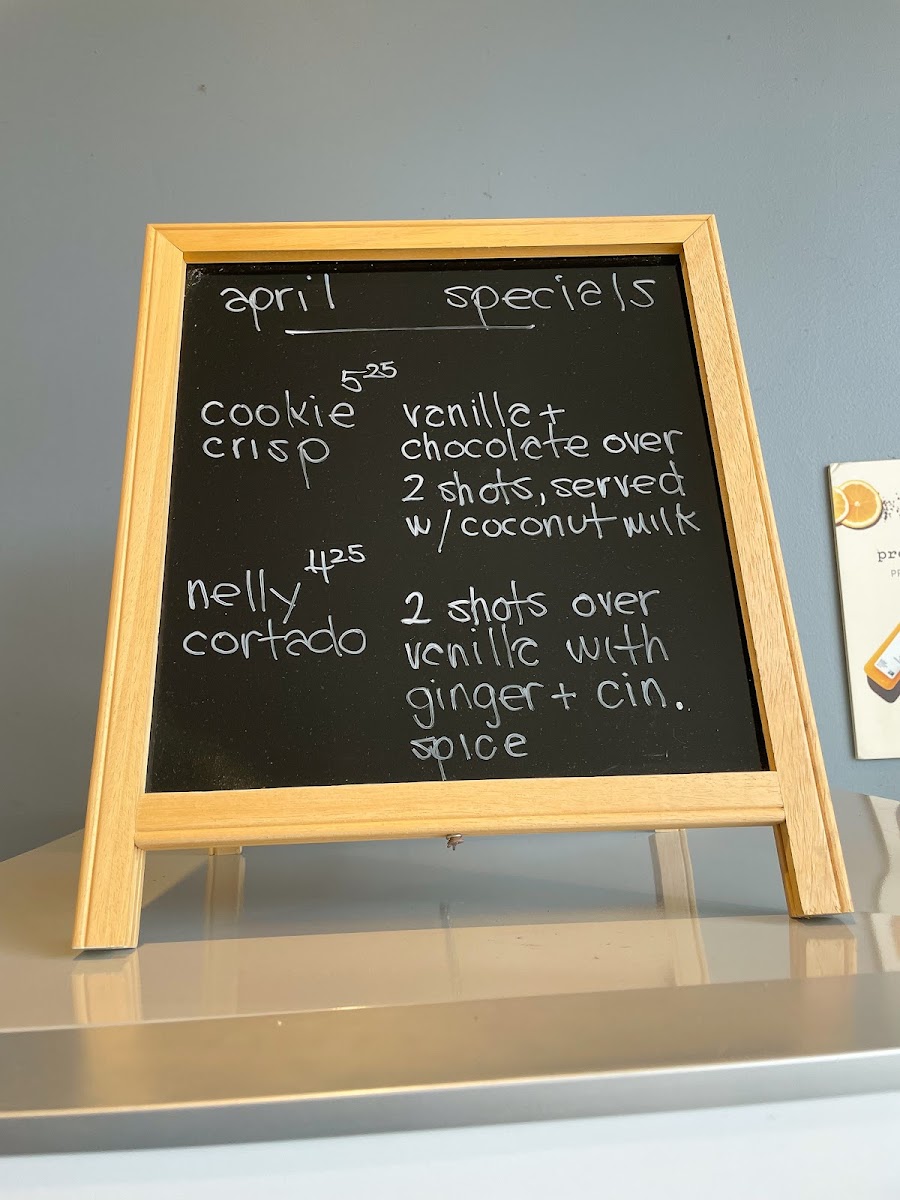 april specials
5.25
cookie
crisp
vanilla +
chocolate over
2 shots, served
w/ coconut milk
4.25
nelly
cortado
2 shots over
vanilla with
ginger + cin.
spice